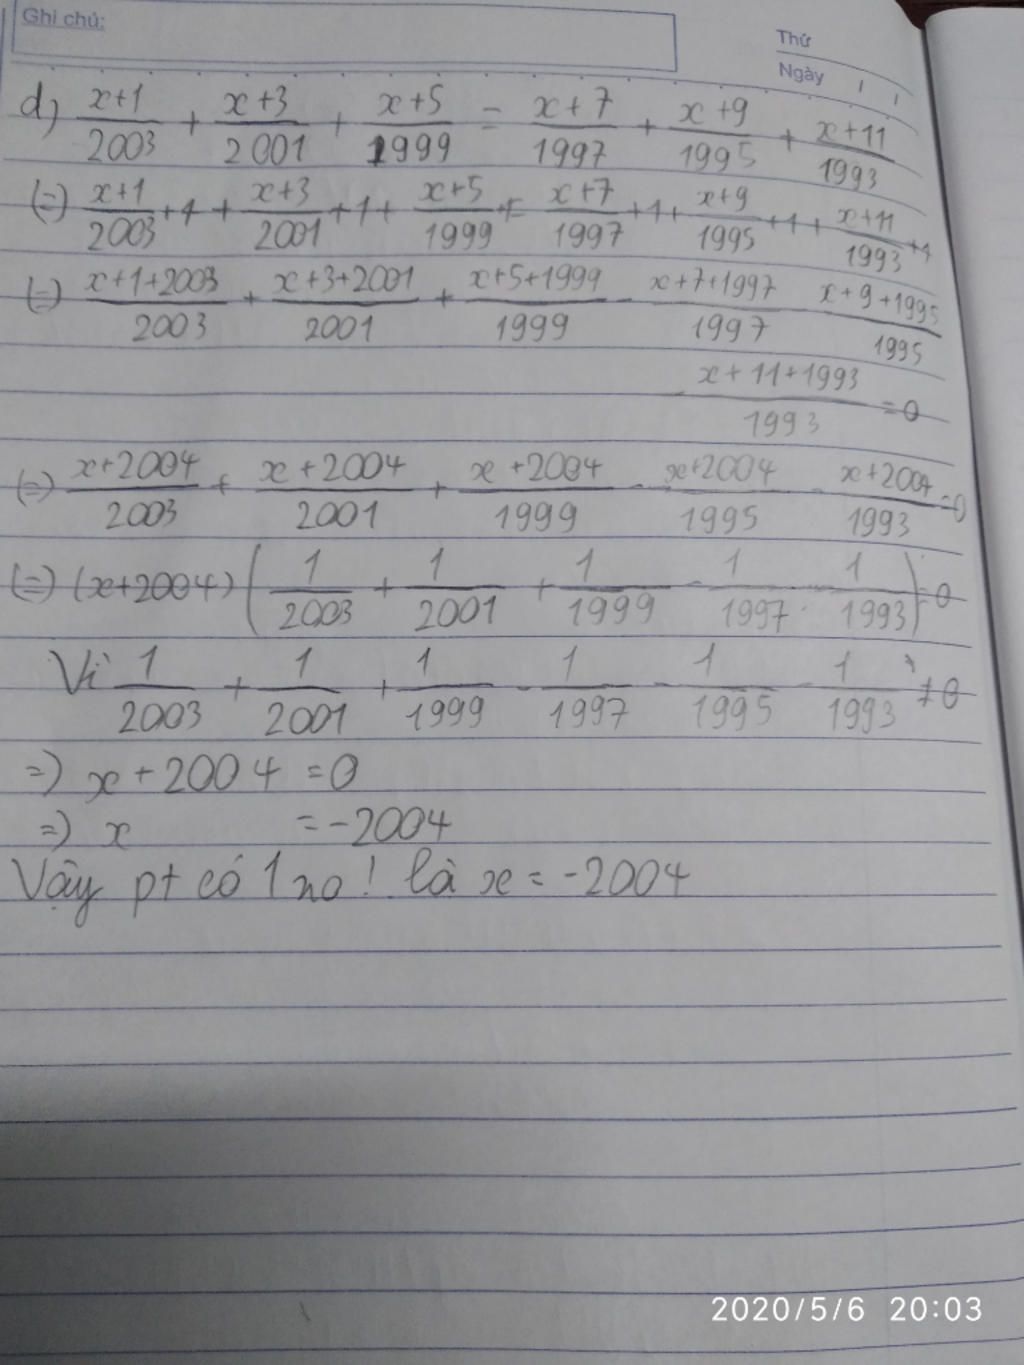 Ghi chú:
Thứ
Ngày / /
d) (x+1)/2003 + (x+3)/2001 + (x+5)/1999 = (x+7)/1997 + (x+9)/1995 + (x+11)/1993
(=) (x+1)/2003 +1 + (x+3)/2001 +1+ (x+5)/1999 += (x+7)/1997 +1+ (x+9)/1995 +1+ (x+11)/1993 +1
(=) (x+1+2003)/2003 + (x+3+2001)/2001 + (x+5+1999)/1999 - (x+7+1997)/1997 (x+9+1995)/1995
- (x+11+1993)/1993 =0
(=) (x+2004)/2003 + (x+2004)/2001 + (x+2004)/1999 - (x+2004)/1995 - (x+2004)/1993 =0
(=) (x+2004) (1/2003 + 1/2001 + 1/1999 - 1/1997 - 1/1993) =0
Vì 1/2003 + 1/2001 + 1/1999 - 1/1997 - 1/1995 - 1/1993 ≠0
=) x+2004 =0
=) x =-2004
Vậy pt có 1 no! là x = -2004
2020/5/6 20:03